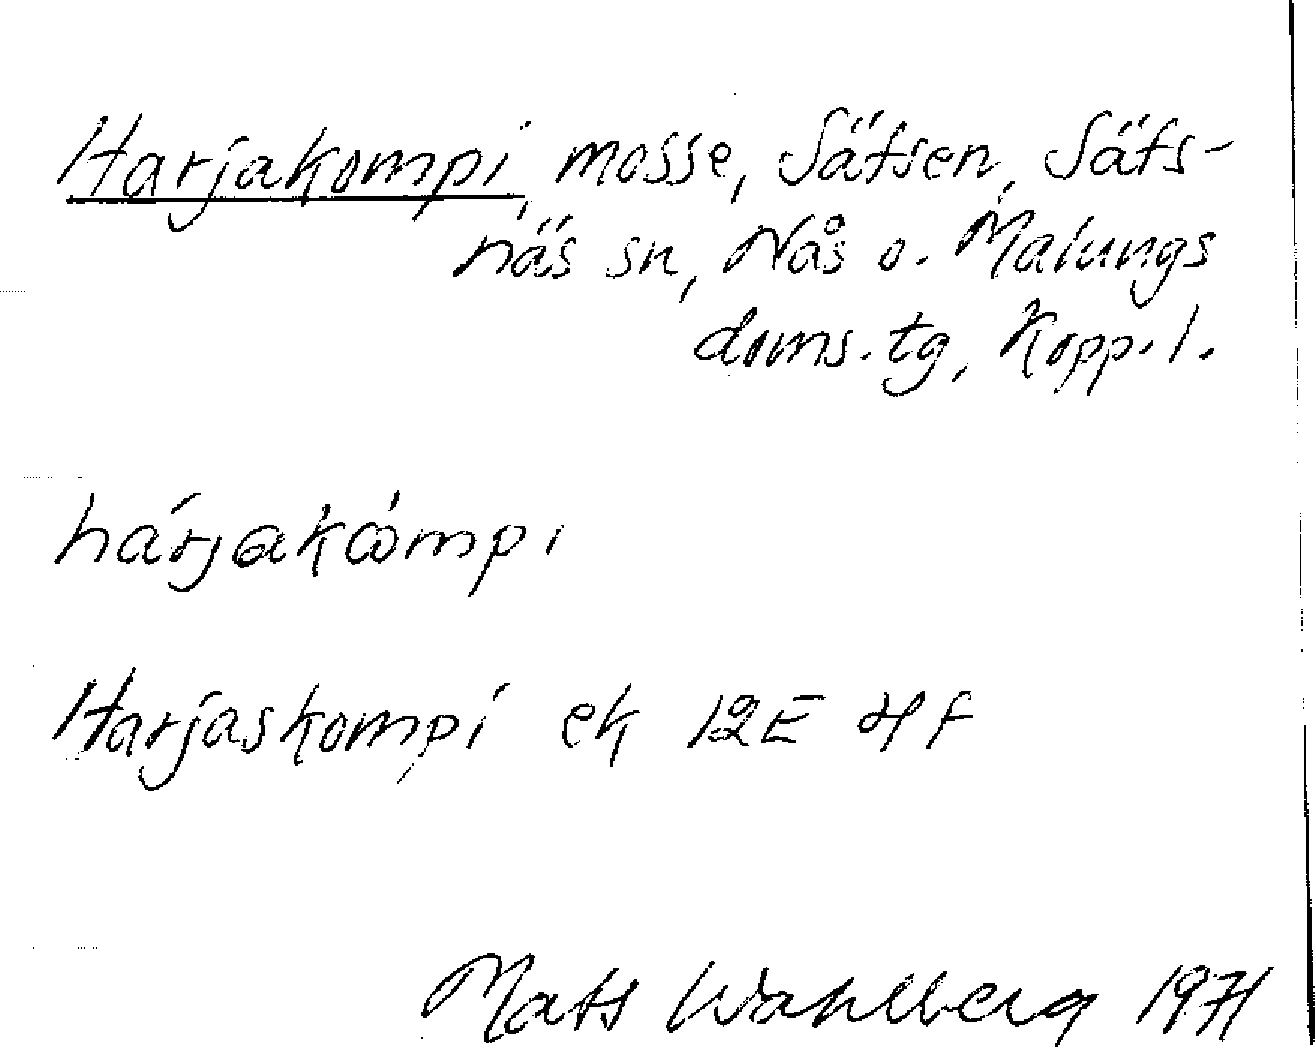 Harjakompi, mosse, Sätsen, Säfs-
näs sn, Nås o. Malungs
doms. tg, Kopp. l.
hárjakómpi
Harjaskompi ek 12E 4f
Mats Wahlberg 1971